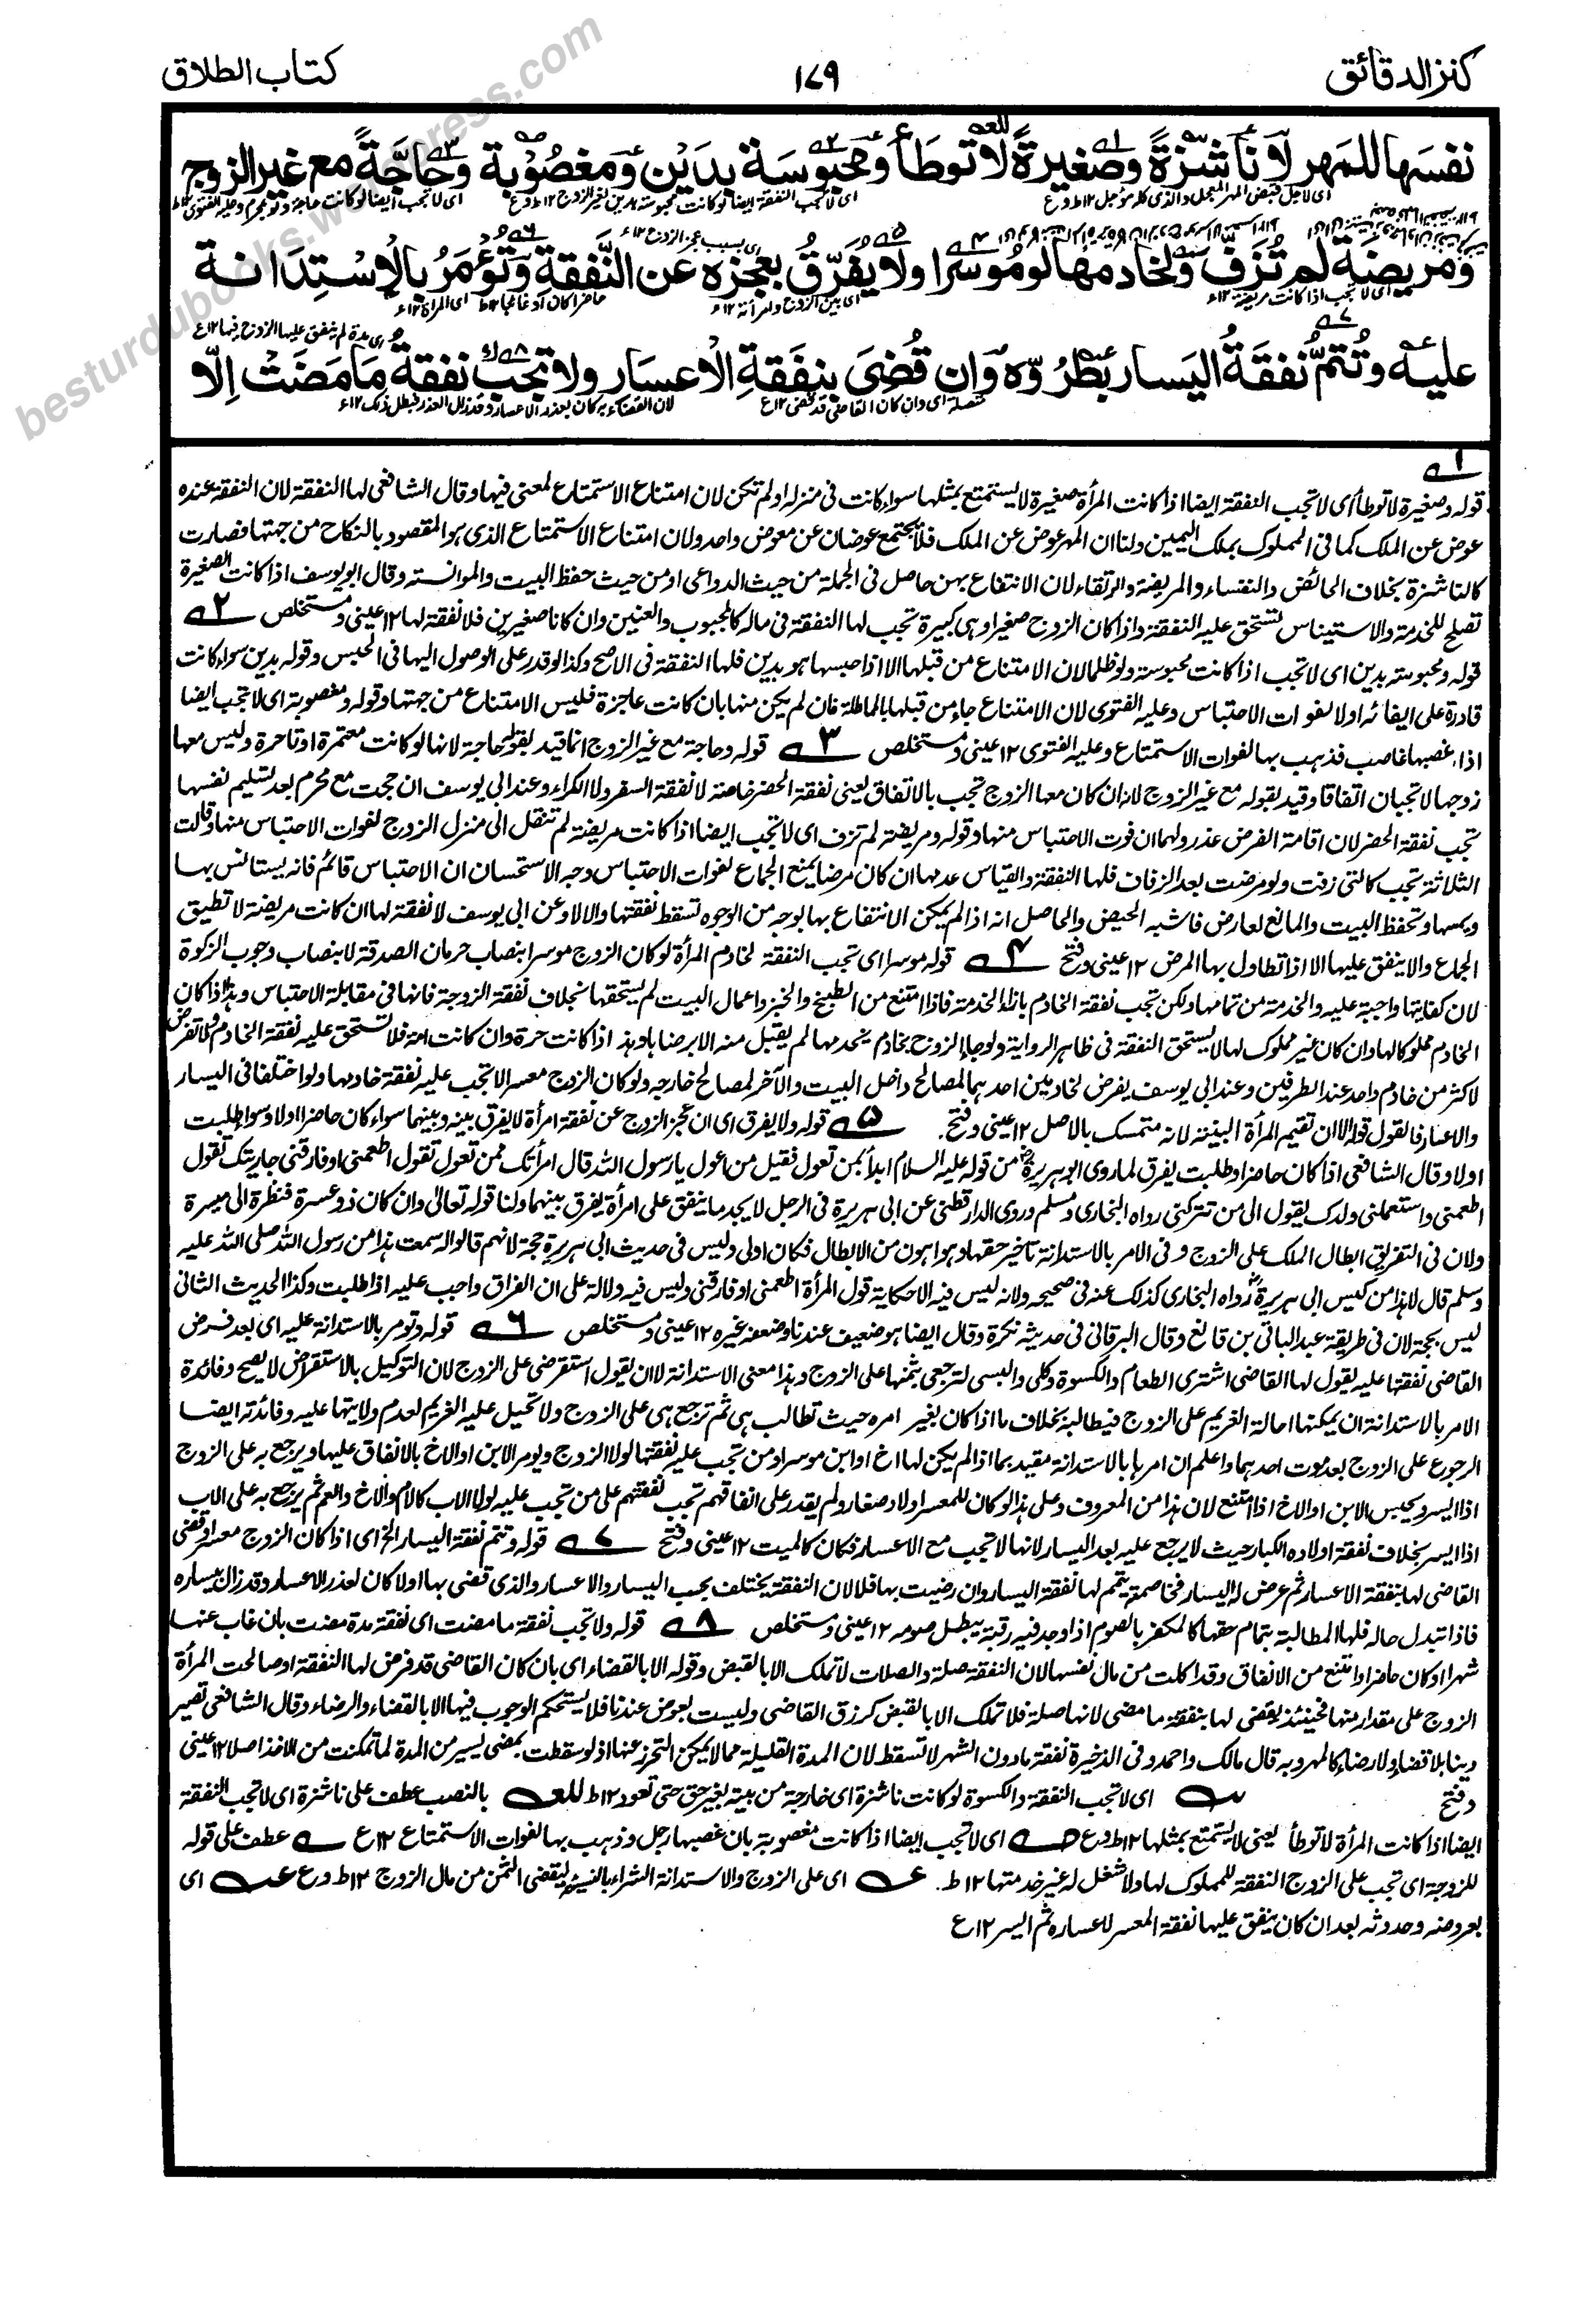 كنز الدقائق
١٧٩
كتاب الطلاق
نفسها للمهر لا ناشزة وصغيرة لا توطأ ومحبوسة بدين ومغصوبة وحاجّة مع غير الزوج
اى لاجل قبض المهر المعجل والذى كله مؤجل ١٢ط وع
اى لا تجب النفقة ايضا لو كانت محبوسة بدين لغير الزوج ١٢ط وع
اى لا تجب ايضا لو كانت حاجة ولو بمحرم وعليه الفتوى ١٢ط
ومريضة لم تزف ولخادمها لو موسرا ولا يفرق بعجزه عن النفقة وتؤمر بالاستدانة
اى لا تجب اذا كانت مريضة ١٢ع
اى بسبب عجز الزوج ١٢ع
اى بين الزوج وامرأته ١٢ع
حاضرا كان او غائبا ١٢ط
اى المرأة ١٢ع
عليه وتتم نفقة اليسار بطروّه وان قضى بنفقة الاعسار ولا تجب نفقة ما مضت الّا
اى مدة لم ينفق عليها الزوج فيها ١٢ع
متصلة اى وان كان القاضى قد قضى ١٢ع
لان القضاء به كان بعذر الاعسار وقد زال العذر فبطل ذلك ١٢ع
١ قوله وصغيرة لا توطأ اى لا تجب النفقة ايضا اذا كانت المرأة صغيرة لا يستمتع بمثلها سواء كانت فى منزله او لم تكن لان امتناع الاستمتاع لمعنى فيها وقال الشافعى لها النفقة لان النفقة عنده
عوض عن الملك كما فى المملوك بملك اليمين ولنا ان المهر عوض عن الملك فلا يجتمع عوضان عن معوض واحد ولان امتناع الاستمتاع الذى هو المقصود بالنكاح من جهتها فصارت
كالناشزة بخلاف الحائض والنفساء والمريضة والرتقاء لان الانتفاع بهن حاصل فى الجملة من حيث الدواعى او من حيث حفظ البيت والموانسة وقال ابو يوسف اذا كانت الصغيرة
تصلح للخدمة والاستيناس تستحق عليه النفقة واذا كان الزوج صغيرا وهى كبيرة تجب لها النفقة فى ماله كالمجبوب والعنين وان كانا صغيرين فلا نفقة لها ١٢ عينى ومستخلص ٢
قوله ومحبوسة بدين اى لا تجب اذا كانت محبوسة ولو ظلما لان الامتناع من قبلها الا اذا حبسها هو بدين فلها النفقة فى الاصح وكذا لو قدر على الوصول اليها فى الحبس وقوله بدين سواء كانت
قادرة على ايفائه او لا لفوات الاحتباس وعليه الفتوى لان الامتناع جاء من قبلها بالمماطلة فان لم يكن منها بان كانت عاجزة فليس الامتناع من جهتها وقوله ومغصوبة اى لا تجب ايضا
اذا غصبها غاصب فذهب بها لفوات الاستمتاع وعليه الفتوى ١٢ عينى ومستخلص ٣ قوله وحاجة مع غير الزوج انما قيد بقوله حاجة لانها لو كانت معتمرة او تاجرة وليس معها
زوجها لا تجبان اتفاقا وقيد بقوله مع غير الزوج لانه ان كان معها الزوج تجب بالاتفاق يعنى نفقة الحضر خاصة لا نفقة السفر ولا الكراء وعند ابى يوسف ان حجت مع محرم بعد تسليم نفسها
تجب نفقة الحضر لان اقامة الفرض عذر ولهما ان فوت الاحتباس منها وقوله ومريضة لم تزف اى لا تجب ايضا اذا كانت مريضة لم تنقل الى منزل الزوج لفوات الاحتباس منها وقالت
الثلاثة تجب كالتى زفت ولو مرضت بعد الزفاف فلها النفقة والقياس عدمها ان كان مرضا يمنع الجماع لفوات الاحتباس وجه الاستحسان ان الاحتباس قائم فانه يستانس بها
ويمسها وتحفظ البيت والمانع لعارض فاشبه الحيض والحاصل انه اذا لم يمكن الانتفاع بها بوجه من الوجوه تسقط نفقتها والا لا وعن ابى يوسف لا نفقة لها ان كانت مريضة لا تطيق
الجماع والا ينفق عليها الا اذا تطاول بها المرض ١٢ عينى وفتح ٤ قوله موسرا اى تجب النفقة لخادم المرأة لو كان الزوج موسرا بنصاب حرمان الصدقة لا بنصاب وجوب الزكوة
لان كفايتها واجبة عليه والخدمة من تمامها ولكن تجب نفقة الخادم بازاء الخدمة فاذا امتنع من الطبخ والخبز واعمال البيت لم يستحقها بخلاف نفقة الزوجة فانها فى مقابلة الاحتباس وهذا اذا كان
الخادم مملوكا لها وان كان غير مملوك لها لا يستحق النفقة فى ظاهر الرواية ولو جاء الزوج بخادم يخدمها لم يقبل منه الا برضاها وهذا اذا كانت حرة وان كانت امة فلا تستحق عليه نفقة الخادم ولا تفرض
لاكثر من خادم واحد عند الطرفين وعند ابى يوسف يفرض لخادمين احدهما لمصالح داخل البيت والآخر لمصالح خارجه ولو كان الزوج معسرا لا تجب عليه نفقة خادمها ولو اختلفا فى اليسار
والاعسار فالقول قوله الا ان تقيم المرأة البينة لانه متمسك بالاصل ١٢ عينى وفتح. ٥ قوله ولا يفرق اى ان عجز الزوج عن نفقة امرأة لا يفرق بينه وبينهما سواء كان حاضرا اولا وسواء طلبت
اولا وقال الشافعى اذا كان حاضرا وطلبت يفرق لما روى ابو هريرة من قوله عليه السلام ابدأ بمن تعول فقيل من اعول يا رسول الله قال امرأتك فمن تعول تقول اطعمنى او فارقنى جاريتك تقول
اطعمنى واستعملنى ولدك يقول الى من تتركنى رواه البخارى ومسلم وروى الدارقطنى عن ابى هريرة فى الرجل لا يجد ما ينفق على امرأة يفرق بينهما ولنا قوله تعالى وان كان ذو عسرة فنظرة الى ميسرة
ولان فى التفريق ابطال الملك على الزوج وفى الامر بالاستدانة تاخير حقها وهو اهون من الابطال فكان اولى وليس فى حديث ابى هريرة حجة لانهم قالوا له سمعت هذا من رسول الله صلى الله عليه
وسلم قال لا هذا من كيس ابى هريرة رواه البخارى كذلك عنه فى صحيحه ولانه ليس فيه الا حكاية قول المرأة اطعمنى او فارقنى وليس فيه دلالة على ان الفراق واجب عليه اذا طلبت وكذا الحديث الثانى
ليس بحجة لان فى طريقة عبد الباقى بن قانع وقال البرقانى فى حديثه نكرة وقال ايضا هو ضعيف عندنا وضعفه غيره ١٢ عينى ومستخلص ٦ قوله وتومر بالاستدانة عليه اى بعد فرض
القاضى نفقتها عليه يقول لها القاضى اشترى الطعام والكسوة وكلى والبسى لترجعى بثمنها على الزوج وهذا معنى الاستدانة لا ان يقول استقرضى على الزوج لان التوكيل بالاستقراض لا يصح وفائدة
الامر بالاستدانة ان يمكنها احالة الغريم على الزوج فيطالبه بخلاف ما اذا كان بغير امره حيث تطالب هى ثم ترجع هى على الزوج ولا تحيل عليه الغريم لعدم ولايتها عليه وفائدته ايضا
الرجوع على الزوج بعد موت احدهما واعلم ان امرها بالاستدانة مقيد بما اذا لم يكن لها اخ او ابن موسر او من تجب عليه نفقتها لولا الزوج ويومر الابن او الاخ بالانفاق عليها ويرجع به على الزوج
اذا ايسر ويحبس الابن او الاخ اذا امتنع لان هذا من المعروف وعلى هذا لو كان للمعسر اولاد صغار ولم يقدر على انفاقهم تجب نفقتهم على من تجب عليه لولا الاب كالام والاخ والعم ثم يرجع به على الاب
اذا ايسر بخلاف نفقة اولاده الكبار حيث لا يرجع عليه بعد اليسار لانها لا تجب مع الاعسار فكان كالميت ١٢ عينى وفتح ٧ قوله وتتم نفقة اليسار الخ اى اذا كان الزوج معسرا وقضى
القاضى لها بنفقة الاعسار ثم عرض له اليسار فخاصمته يتمم لها نفقة اليسار وان رضيت بها قلا لان النفقة يختلف بحسب اليسار والاعسار والذى قضى بها اولا كان لعذر الاعسار وقد زال بيساره
فاذا تبدل حاله فلها المطالبة بتمام حقها كالمكفر بالصوم اذا وجد فيه رقبة يبطل صومه ١٢ عينى ومستخلص ٨ قوله ولا تجب نفقة ما مضت اى نفقة مدة مضت بان غاب عنها
شهرا او كان حاضرا وامتنع من الانفاق وقد اكلت من مال نفسها لان النفقة صلة والصلات لا تملك الا بالقبض وقوله الا بالقضاء اى بان كان القاضى قد فرض لها النفقة او صالحت المرأة
الزوج على مقدار منها فحينئذ يقضى لها بنفقة ما مضى لانها صلة فلا تملك الا بالقبض كرزق القاضى وليست بعوض عندنا فلا يستحكم الوجوب فيها الا بالقضاء والرضاء وقال الشافعى تصير
دينا بلا قضاء ولا رضاء كالمهر وبه قال مالك واحمد وفى الذخيرة نفقة ما دون الشهر لا تسقط لان المدة القليلة مما لا يمكن التحرز عنها اذ لو سقطت بمضى يسير من المدة لما تمكنت من الاخذ اصلا ١٢ عينى
وفتح اى لا تجب النفقة والكسوة لو كانت ناشزة اى خارجة من بيته بغير حق حتى تعود ١٢ط للعه بالنصب عطف على ناشزة اى لا تجب النفقة
ايضا اذا كانت المرأة لا توطأ يعنى لا يستمتع بمثلها ١٢ط وع صه اى لا تجب ايضا اذا كانت مغصوبة بان غصبها رجل وذهب بها لفوات الاستمتاع ١٢ع عطف على قوله
للزوجة اى تجب على الزوج النفقة للمملوك لها ولا شغل له غير خدمتها ١٢ط. عه اى على الزوج والاستدانة الشراء بالنسيئة ليقضى الثمن من مال الزوج ١٢ط وع عه اى
بعروضه وحدوثه بعد ان كان ينفق عليها نفقة المعسر لاعساره ثم ايسر ١٢ع
besturdubooks.wordpress.com